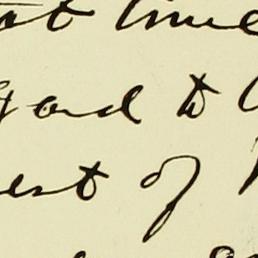 at time
gard to
est of